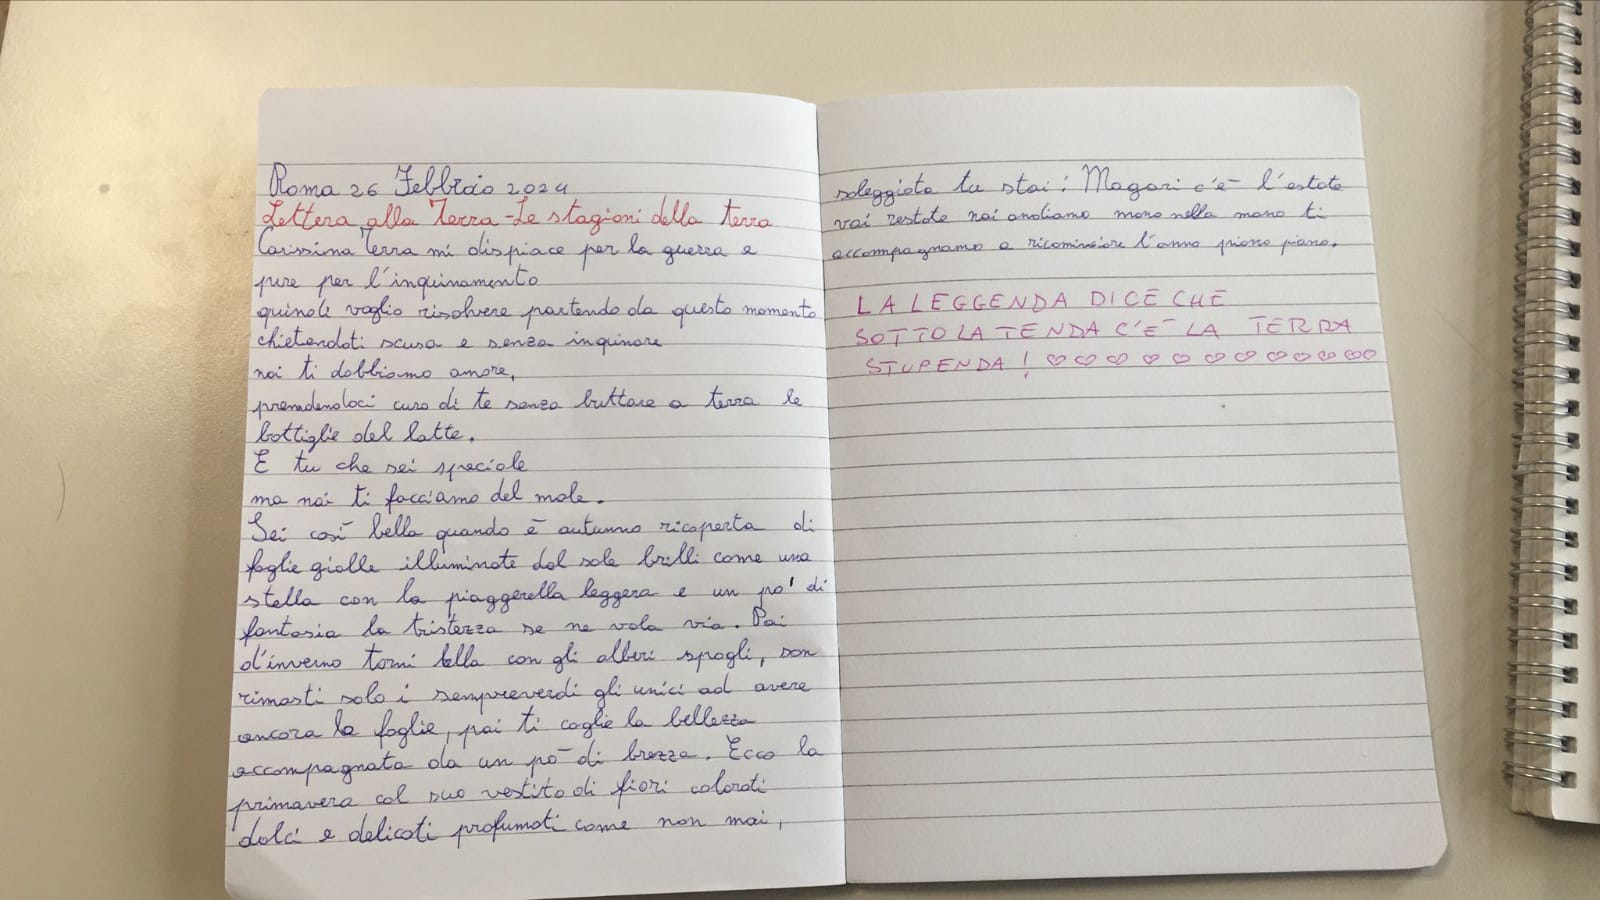 Roma 26 Febbraio 2024
Lettera alla Terra-Le stagioni della terra
Carissima Terra mi dispiace per la guerra e
pure per l'inquinamento
quindi voglio risolvere partendo da questo momento
chietendoti scusa e senza inquinare
noi ti dobbiamo amore,
premdendoci cura di te senza buttare a terra le
bottiglie del latte.
E tu che sei speciale
ma noi ti facciamo del male.
Sei così bella quando è autunno ricoperta di
foglie gialle illuminate dal sole brilli come una
stella con la pioggerella leggera e un po' di
fantasia la tristezza se ne vola via. Poi
d'inverno torni bella con gli alberi spogli, son
rimasti solo i sempreverdi gli unici ad avere
ancora le foglie, poi ti coglie la bellezza
accompagnata da un pò di brezza. Ecco la
primavera col suo vestito di fiori colorati
dolci e delicati profumati come non mai,
soleggiata tu stai! Magari c'è l'estate
vai restate noi andiamo mano nella mano ti
accompagnamo a ricominciare l'anno piano piano.
LA LEGGENDA DICE CHE
SOTTO LA TENDA C'È LA TERRA
STUPENDA! ♡♡♡♡♡♡♡♡♡♡♡♡